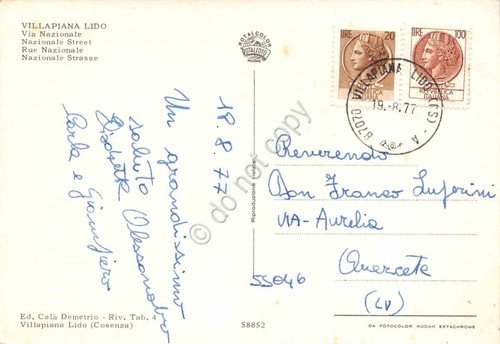 VILLAPIANA LIDO
Via Nazionale
Nazionale Street
Rue Nazionale
Nazionale Strasse
ROTALCOLOR
ROTALFOTO
MILANO
LIRE 20
LIRE 100
87070 VILLAPIANA LIDO (CS) - A
19.-8.77
18.8.77
Un grandissimo
saluto
Elisabetta Alessandro
Carla e Gianpiero
do not copy
Riproduzione
Reverendo
Don Franco Luperini
VIA-Aurelia
55046 Querceta
(LU)
Ed. Calà Demetrio - Riv. Tab. 4
Villapiana Lido (Cosenza)
58852
DA FOTOCOLOR KODAK EKTACHROME